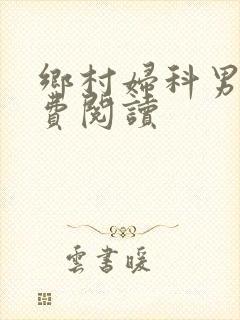 鄉村婦科男
費閱讀
雲書暖